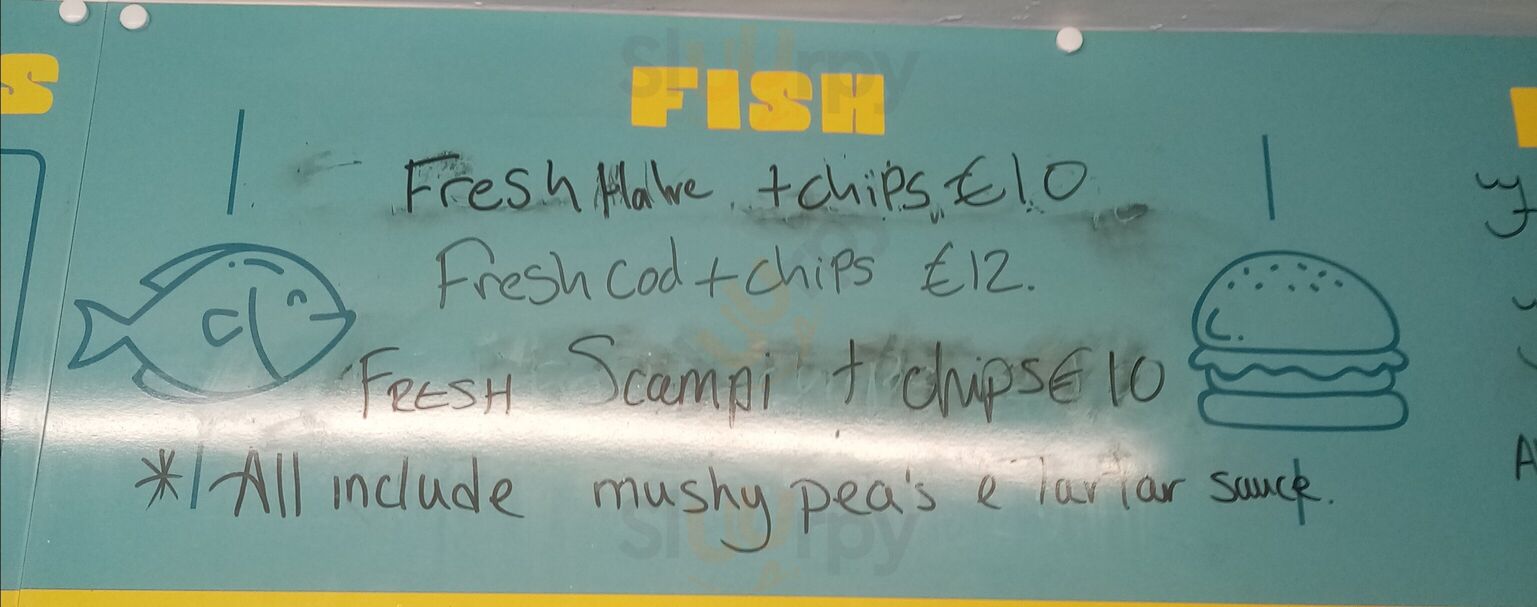 S
FISH
Fresh Hake + chips €10
Fresh cod + chips €12.
FRESH Scampi + chips € 10
* All include mushy pea's e Tartar sauce.